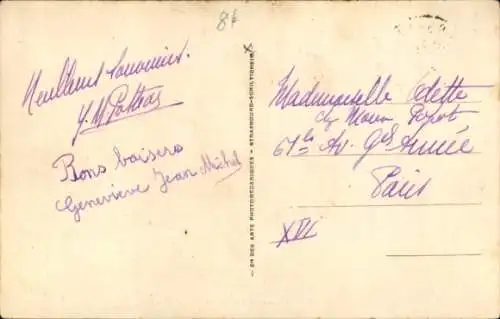 8f
Meilleurs souvenirs.
Bons baisers
Geneviève Jean Michel
Cie DES ARTS PHOTOMÉCANIQUES - STRASBOURG-SCHILTIGHEIM
Mademoiselle Odette
chz
61 bis Av. Gde Armée
Paris
XVI